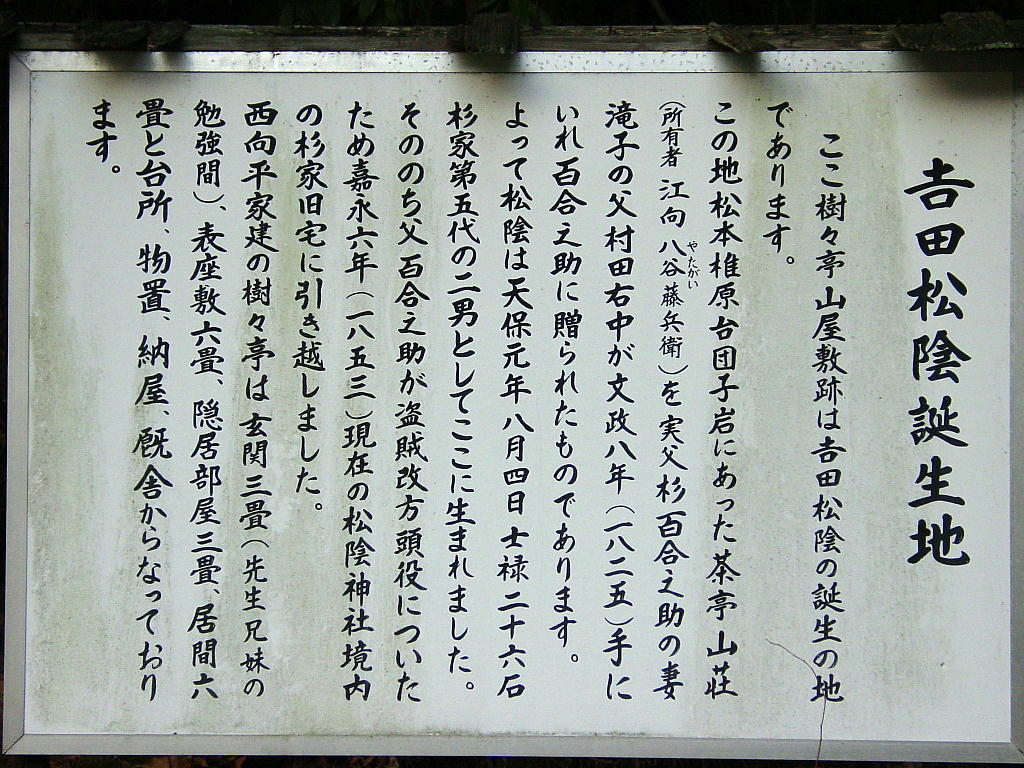 吉田松陰誕生地
ここ樹々亭山屋敷跡は吉田松陰の誕生の地
であります。
この地松本椎原台団子岩にあった茶亭山荘
(所有者 江向八谷藤兵衛)を実父杉百合之助の妻
やたがい
滝子の父村田右中が文政八年(一八二五)手に
いれ百合之助に贈られたものであります。
よって松陰は天保元年八月四日士禄二十六石
杉家第五代の二男としてここに生まれました。
そののち父百合之助が盗賊改方頭役についた
ため嘉永六年(一八五三)現在の松陰神社境内
の杉家旧宅に引き越しました。
西向平家建の樹々亭は玄関三畳(先生兄妹の
勉強間)、表座敷六畳、隠居部屋三畳、居間六
畳と台所、物置、納屋、厩舎からなっており
ます。